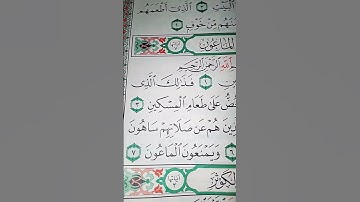 الْبَيْتِ ٣ الَّذِي أَطْعَمَهُم
مِّنْ خَوْفٍ ٤
الْمَاعُونِ
اللَّهِ الرَّحْمَٰنِ الرَّحِيمِ
١ فَذَٰلِكَ الَّذِي
عَلَىٰ طَعَامِ الْمِسْكِينِ ٣
هُمْ عَن صَلَاتِهِمْ سَاهُونَ
٦ وَيَمْنَعُونَ الْمَاعُونَ ٧
الْكَوْثَرِ